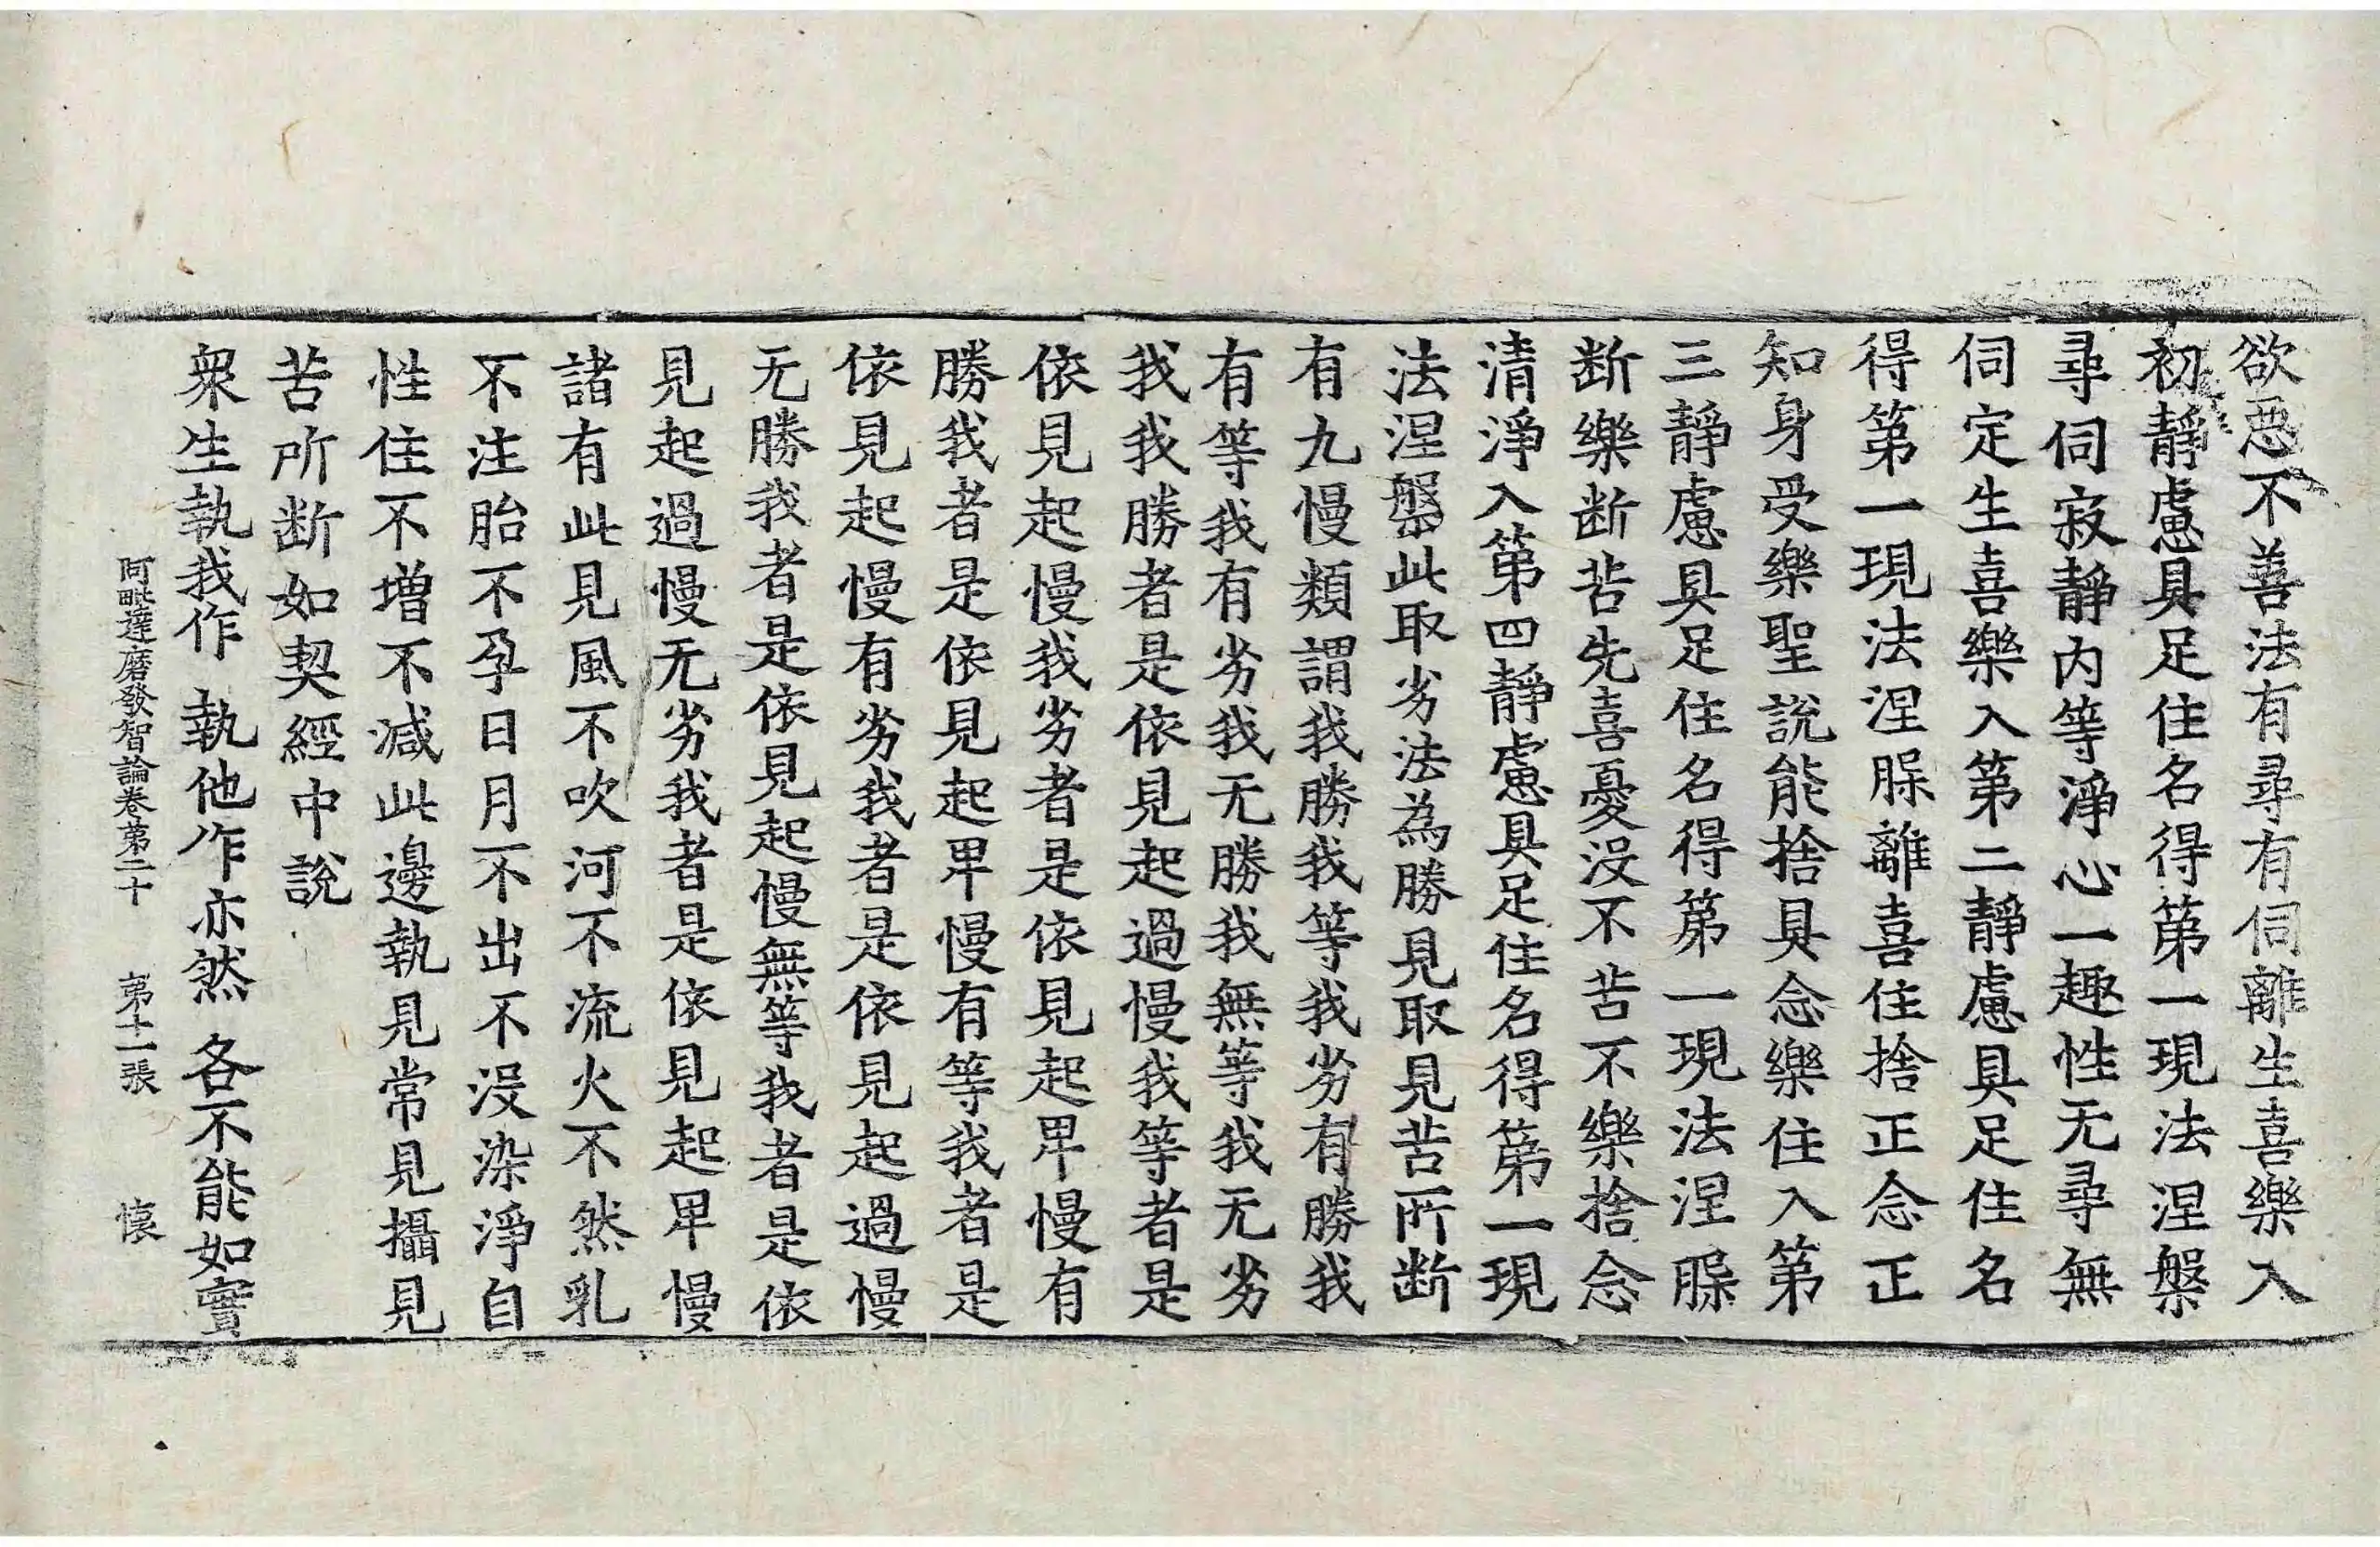 欲惡不善法有尋有伺離生喜樂入
初靜慮具足住名得第一現法涅槃
尋伺寂靜內等淨心一趣性无尋無
伺定生喜樂入第二靜慮具足住名
得第一現法涅槃離喜住捨正念正
知身受樂聖說能捨具念樂住入第
三靜慮具足住名得第一現法涅槃
断樂断苦先喜憂沒不苦不樂捨念
清淨入第四靜慮具足住名得第一現
法涅槃此取劣法為勝見取見苦所断
有九慢類謂我勝我等我劣有勝我
有等我有劣我无勝我無等我无劣
我我勝者是依見起過慢我等者是
依見起慢我劣者是依見起卑慢有
勝我者是依見起卑慢有等我者是
依見起慢有劣我者是依見起過慢
无勝我者是依見起慢無等我者是依
見起過慢无劣我者是依見起卑慢
諸有此見風不吹河不流火不然乳
不注胎不孕日月不出不沒染淨自
性住不增不减此邊執見常見攝見
苦所断如契經中說
衆生執我作 執他作亦然 各不能如實
阿毗達磨發智論卷第二十 第十二張 懷